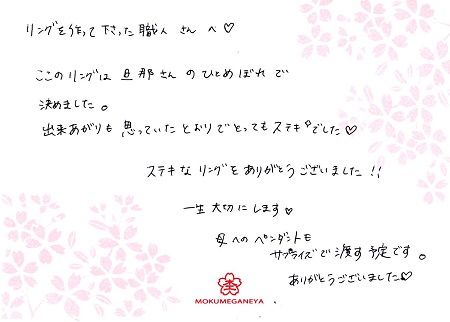 リングを作って下さった職人さんへ♡
ここのリングは旦那さんのひとめぼれで
決めました。
出来あがりも思っていたとおりでとってもステキでした♡
ステキなリングをありがとうございました!!
一生大切にします♡
母へのペンダントも
サプライズで渡す予定です。
ありがとうございました♡
MOKUMEGANEYA